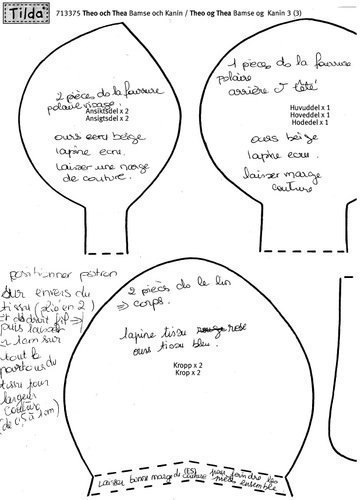 Tilda
713375 Theo och Thea Bamse och Kanin / Theo og Thea Bamse og Kanin 3 (3)
2 pièces de la fourrure
polaire visage.
Ansiktsdel x 2
Ansigtsdel x 2
ours ecru beige
lapine ecru.
laisser une marge
de couture.
1 pièces de la fourrure
polaire
arrière tête
Huvuddel x 1
Hoveddel x 1
Hodedel x 1
ours beige
lapine ecru.
laisser marge
couture
positionner patron
sur envers du
tissu (plié en 2)
Et droit fil
puis laisser
1 cm sur
tout le
pourtour du
tissu pour
largeur
couture
(de 0,5 à 1 cm)
2 pièces de le lin
=> corps.
lapine tissu rose
ours tissu bleu.
Kropp x 2
Krop x 2
Laisser bonne marge de couture (ES) pour joindre les
pièces ensemble